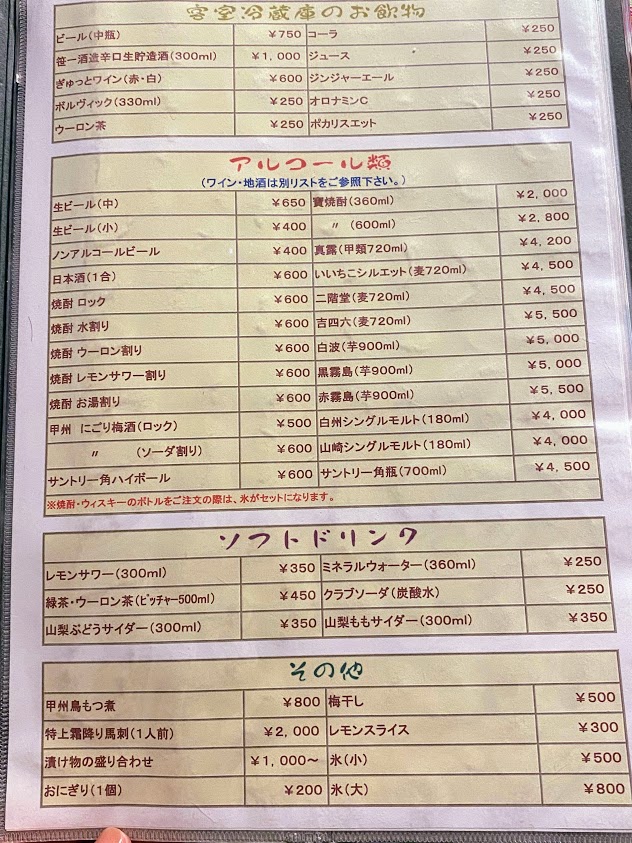 客室冷蔵庫のお飲物
ビール(中瓶) ￥750 コーラ ￥250
笹一酒造辛口生貯造酒(300ml) ￥1,000 ジュース ￥250
ぎゅっとワイン(赤・白) ￥600 ジンジャーエール ￥250
ボルヴィック(330ml) ￥250 オロナミンC ￥250
ウーロン茶 ￥250 ポカリスエット ￥250
アルコール類
(ワイン・地酒は別リストをご参照下さい。)
生ビール(中) ￥650 寶焼酎(360ml) ￥2,000
生ビール(小) ￥400 〃 (600ml) ￥2,800
ノンアルコールビール ￥400 真露(甲類720ml) ￥4,200
日本酒(1合) ￥600 いいちこシルエット(麦720ml) ￥4,500
焼酎 ロック ￥600 二階堂(麦720ml) ￥4,500
焼酎 水割り ￥600 吉四六(麦720ml) ￥5,500
焼酎 ウーロン割り ￥600 白波(芋900ml) ￥5,000
焼酎 レモンサワー割り ￥600 黒霧島(芋900ml) ￥5,000
焼酎 お湯割り ￥600 赤霧島(芋900ml) ￥5,500
甲州 にごり梅酒(ロック) ￥500 白州シングルモルト(180ml) ￥4,000
〃 (ソーダ割り) ￥600 山崎シングルモルト(180ml) ￥4,000
サントリー角ハイボール ￥600 サントリー角瓶(700ml) ￥4,500
※焼酎・ウィスキーのボトルをご注文の際は、氷がセットになります。
ソフトドリンク
レモンサワー(300ml) ￥350 ミネラルウォーター(360ml) ￥250
緑茶・ウーロン茶(ﾋﾟｯﾁｬｰ500ml) ￥450 クラブソーダ(炭酸水) ￥250
山梨ぶどうサイダー(300ml) ￥350 山梨ももサイダー(300ml) ￥350
その他
甲州鳥もつ煮 ￥800 梅干し ￥500
特上霜降り馬刺(1人前) ￥2,000 レモンスライス ￥300
漬け物の盛り合わせ ￥1,000～ 氷(小) ￥500
おにぎり(1個) ￥200 氷(大) ￥800